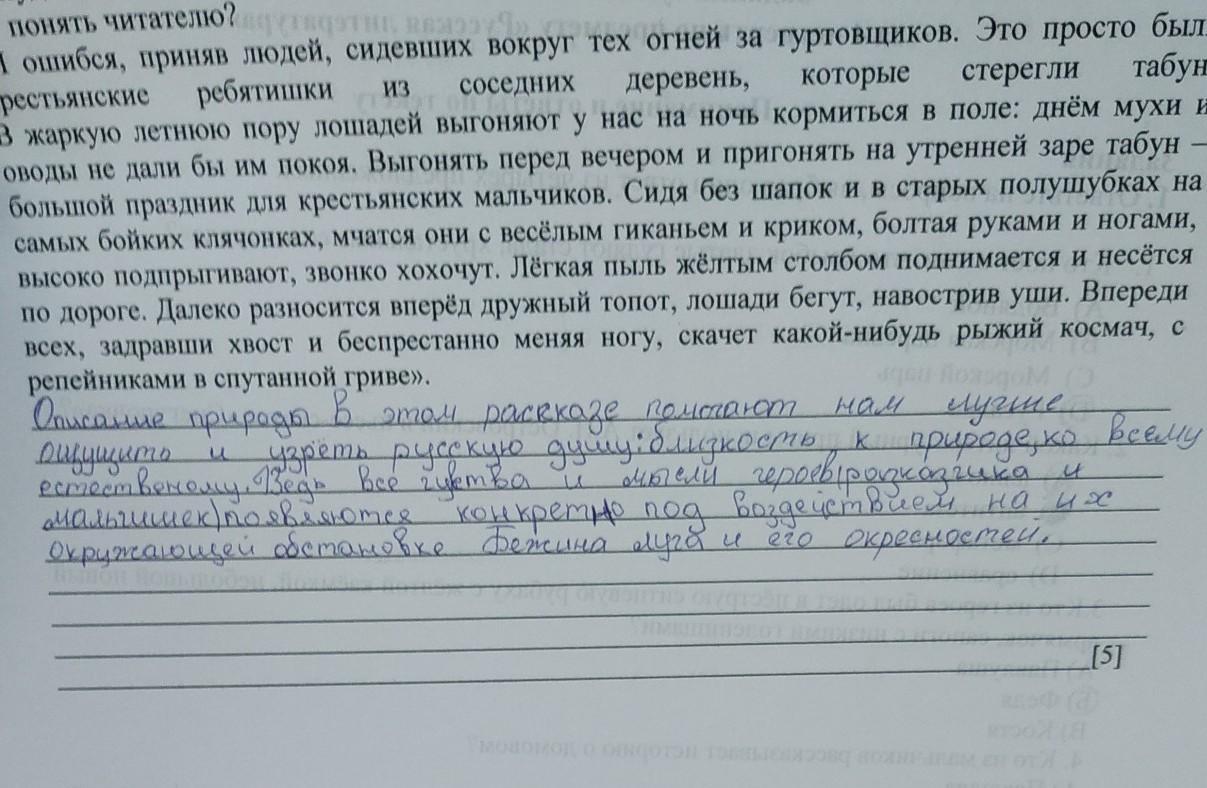 понять читателю?
ошибся, приняв людей, сидевших вокруг тех огней за гуртовщиков. Это просто был
рестьянские ребятишки из соседних деревень, которые стерегли табун
В жаркую летнюю пору лошадей выгоняют у нас на ночь кормиться в поле: днём мухи и
оводы не дали бы им покоя. Выгонять перед вечером и пригонять на утренней заре табун –
большой праздник для крестьянских мальчиков. Сидя без шапок и в старых полушубках на
самых бойких клячонках, мчатся они с весёлым гиканьем и криком, болтая руками и ногами,
высоко подпрыгивают, звонко хохочут. Лёгкая пыль жёлтым столбом поднимается и несётся
по дороге. Далеко разносится вперёд дружный топот, лошади бегут, навострив уши. Впереди
всех, задравши хвост и беспрестанно меняя ногу, скачет какой-нибудь рыжий космач, с
репейниками в спутанной гриве».
Описание природы в этом рассказе помогают нам лучше
ощущить и узреть русскую душу: близкость к природе, ко всему
естественому. Ведь все чувтва и мысли героев (разказчика и
мальчишек) появляются конкретно под воздействием на их
окружающей обстановке Бежина луга и его окресностей.
[5]